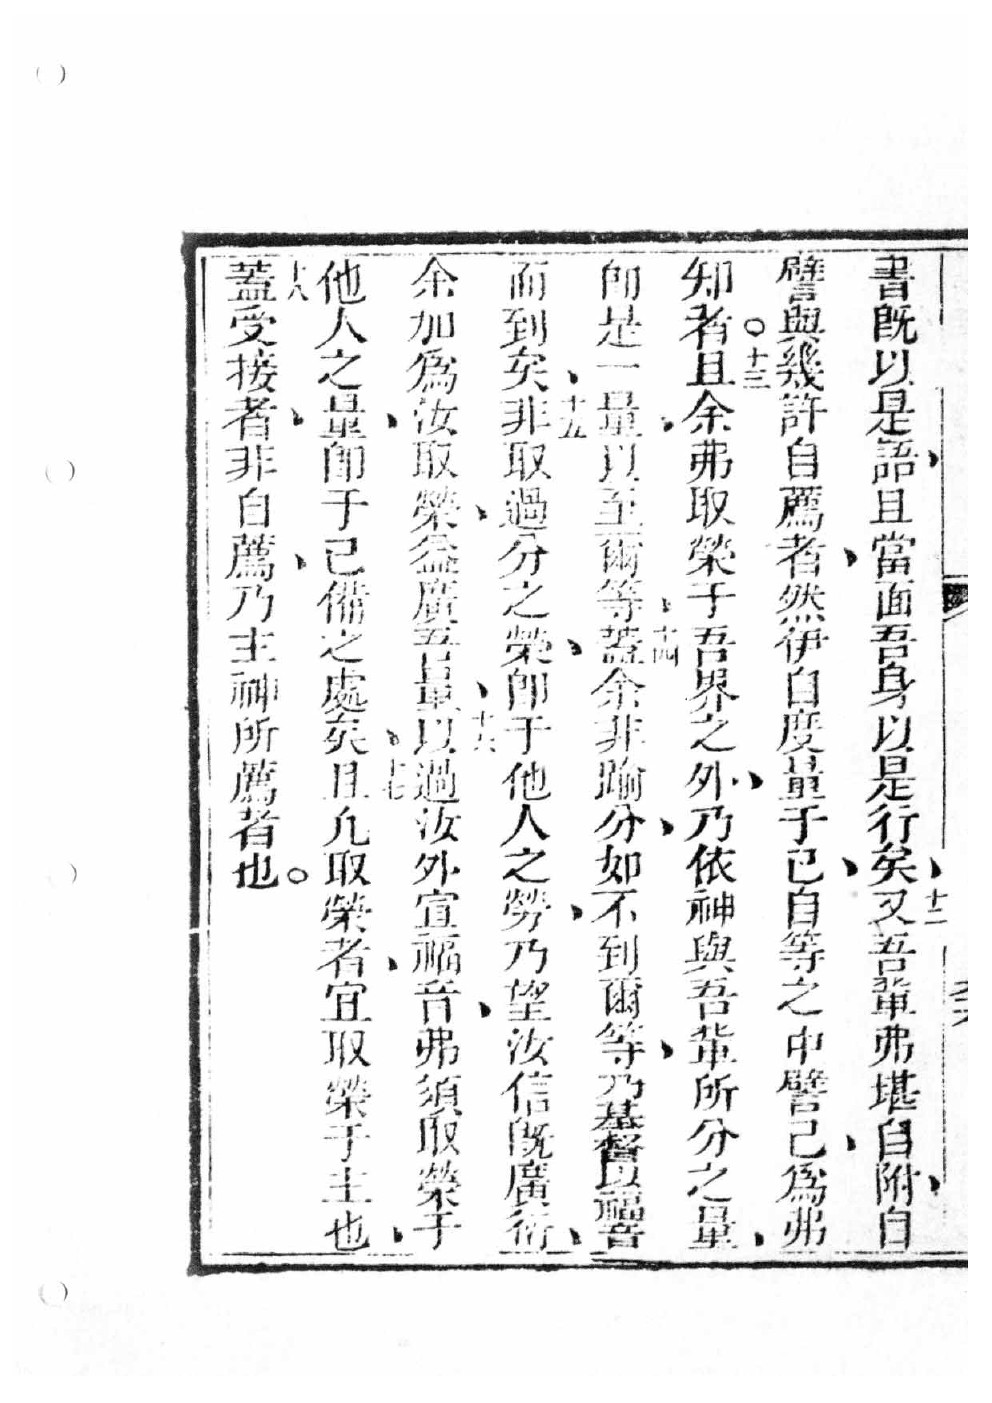 書既以是語、且當面吾身以是行矣、十二又吾輩弗堪自附、自
譬與幾許自薦者、然伊自度量于已、自等之中譬己、爲弗
知者。十三且余弗取榮于吾界之外、乃依神與吾輩所分之量、
卽是一量、以至爾等、十四蓋余非踰分、如不到爾等、乃基督以福音
而到矣、十五非取過分之榮、卽于他人之勞、乃望汝信旣廣衍、
余加爲汝取榮、益廣吾量、十六以過汝外宣福音、弗須取榮于
他人之量、卽于已備之處矣、十七且凡取榮者、宜取榮于主也、
十八蓋受接者、非自薦、乃主神所薦者也。